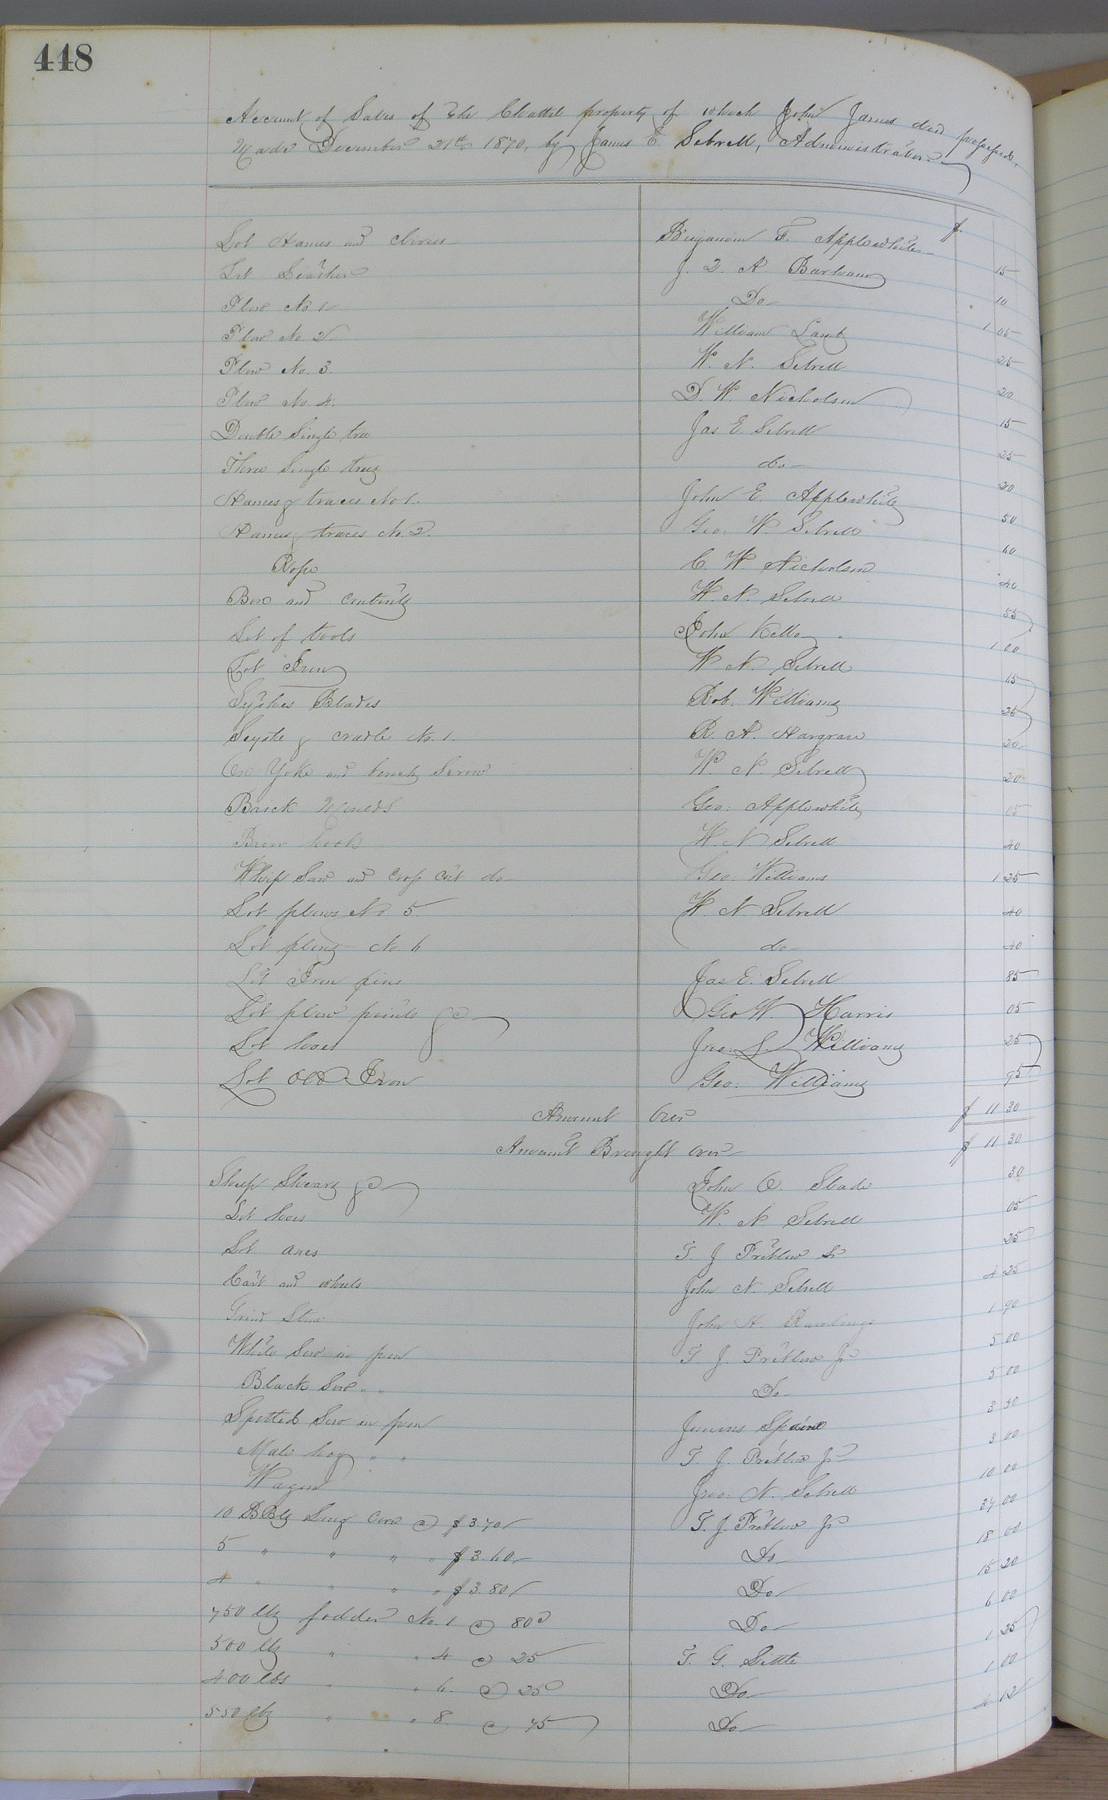 448
Account of Sales of the Chattel property of which John James died possessed,
Made December 21st 1870, by James E Sebrell, Administrator
$
Lot Hames and Benjamin F. Applewhite 15
Lot Leather J. D. A Barham 10
Plow No 1 Do 1 05
Plow No 2 William Lamb 25
Plow No. 3 W. N. Sebrell 20
Plow No. 4. D. W Nicholson 15
Double Single tree Jas E Sebrell 25
Three Single trees do 20
Hames & traces No 1. John E. Applewhite 50
Hames & traces No. 2. Geo. W Sebrell 60
Rope C. W Nicholson 40
Box and contents W. N. Sebrell 55
Lot of tools John Kello 1 00
Lot Iron W N Sebrell 15
Scythes Blades Rob. Williams 25
Scythe & cradle No. 1. R. A. Hargrave 20
Ox Yoke and bench Screw W N. Sebrell 20
Brick Moulds Geo. Applewhite 05
hook W. N Sebrell 40
Whip Saw and Crop Cut do Geo. Williams 1 25
Lot plows No 5 W N Sebrell 40
Lot plows No 6 do 40
Lot Iron pins Jas E. Sebrell 85
Lot plow points &c Geo W. Harris 05
Lot hoes Jno. S Williams 25
Lot Old Iron Geo. Williams 95
Amount Over $ 11 30
Amount Brought over $ 11 30
Sheep Shears &c John O. Slade 30
Lot hoes W. N Sebrell 05
Lot axes T J Pretlow Sr 25
Cart and wheels John N. Sebrell 4 25
Grind Stone John H. Rawlings 1 90
White Sow in pen T J. Pretlow Jr 5 00
Black Sow " " Do 5 00
Spotted Sow in pen Junius Spaine 3 50
Male hog " " T. J. Pretlow Jr 3 00
Wagon Jno. N. Sebrell 10 00
10 BBls Corn @ $3.70 T. J. Pretlow Jr 37 00
5 " " " " $3.60 Do 18 00
4 " " " " $3.80 Do 15 20
750 lbs fodder No. 1 @ 80c Do 6 00
500 lbs " " 4 @ 25 T. G. Little 1 25
400 lbs " " 6. @ 25c Do 1 00
550 lbs " " 8. @ 75 Do 4 12